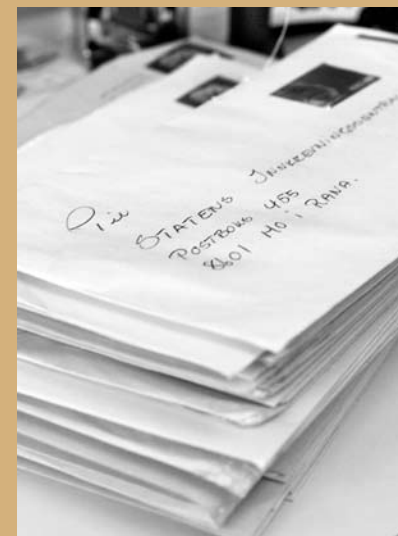 Til
STATENS INNKREVNINGSSENTRAL
POSTBOKS 455
8601 MO i RANA.